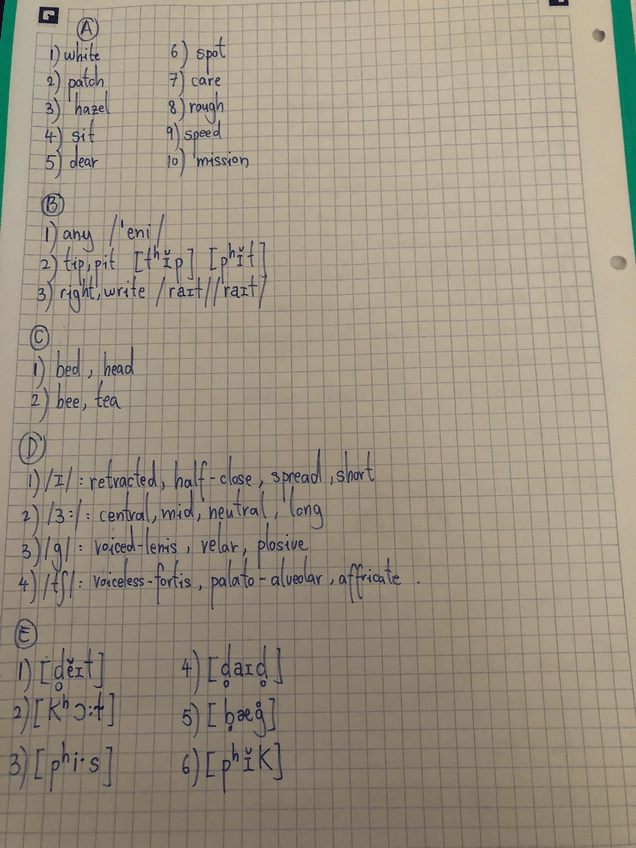 A
1) white
2) patch
3) hazel
4) sit
5) dear
6) spot
7) care
8) rough
9) speed
10) mission
B
1) any /ˈeni/
2) tip, pit [tʰɪ̆p] [pʰɪ̆t]
3) right, write /raɪt/ /raɪt/
C
1) bed, head
2) bee, tea
D
1) /ɪ/: retracted, half-close, spread, short
2) /ɜ:/: central, mid, neutral, long
3) /g/: voiced-lenis, velar, plosive
4) /tʃ/: voiceless-fortis, palato-alveolar, affricate.
E
1) [d̥ĕɪt]
2) [kʰɔ:t]
3) [pʰi·s]
4) [d̥aɪd̥]
5) [b̥æg̊]
6) [pʰɪ̆k]